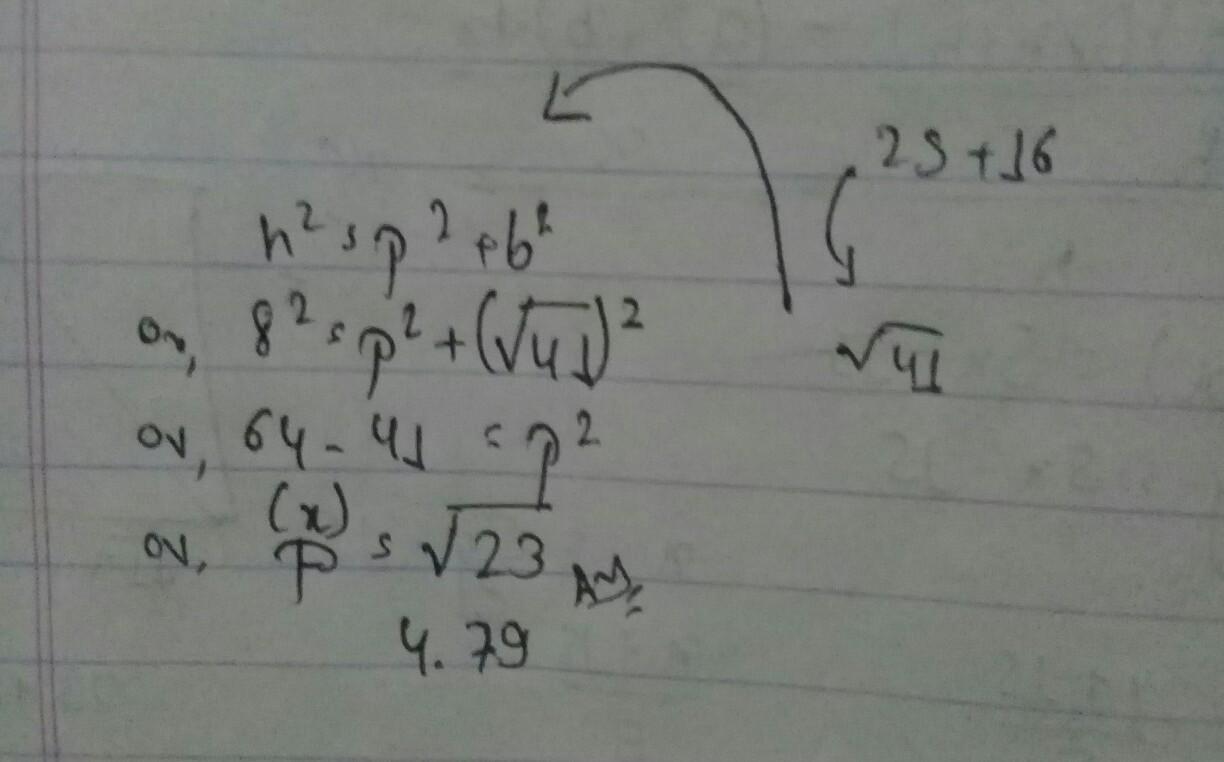 25 + 16
√41
h² = p² + b²
or, 8² = p² + (√41)²
or, 64 - 41 = p²
(x)
or, p = √23 Ans
4.79